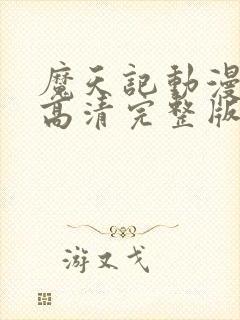 魔天記動漫
高清完整版
游又戈